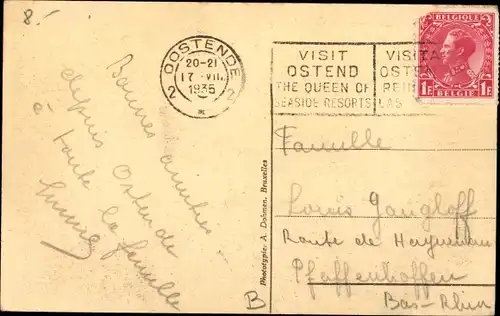 8.-
OOSTENDE
20-21
17 VII
1935
2 2
VISIT
OSTEND
THE QUEEN OF
SEASIDE RESORTS
VISITA
OSTE
REIN
LAS
BELGIQUE
1F 1F
BELGIE
Bonnes amitiés
depuis Ostende
à toute la famille
Famille
Louis Gangloff
Route de
Pfaffenhoffen
Bas-Rhin
Phototypie A. Dohmen, Bruxelles
B